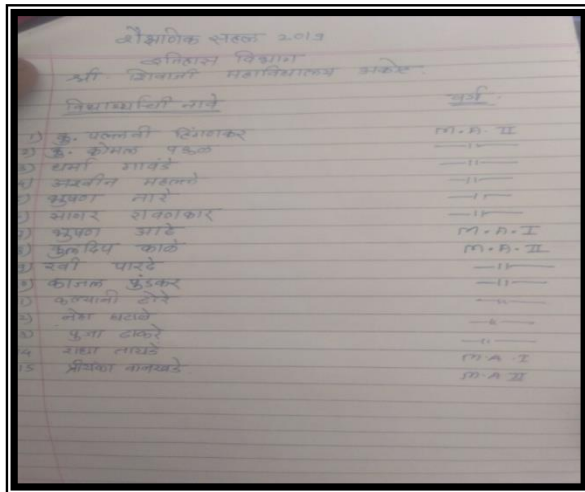 शैक्षणिक सहल 2019
इतिहास विभाग
श्री. शिवाजी महाविद्यालय अकोट.
विद्यार्थ्यांची नावे वर्ग.
1) कु. पल्लवी हिंगणकर M.A. II
2) कु. कोमल —11—
3) धर्मा गावंडे —11—
4) अश्वीन महल्ले —11—
5) भुषण नारे —11—
6) सागर रावणकार —11—
7) भुषण आटे M.A. I
8) कुलदिप काळे M.A. II
9) रवी पारदे —11—
10) काजल फुंडकर —11—
11) कल्यानी ढोरे —11—
12) नेहा —11—
13) पुजा ठाकरे —11—
14 राधा तायडे M.A. I
15 प्रीयंका वानखडे M.A II